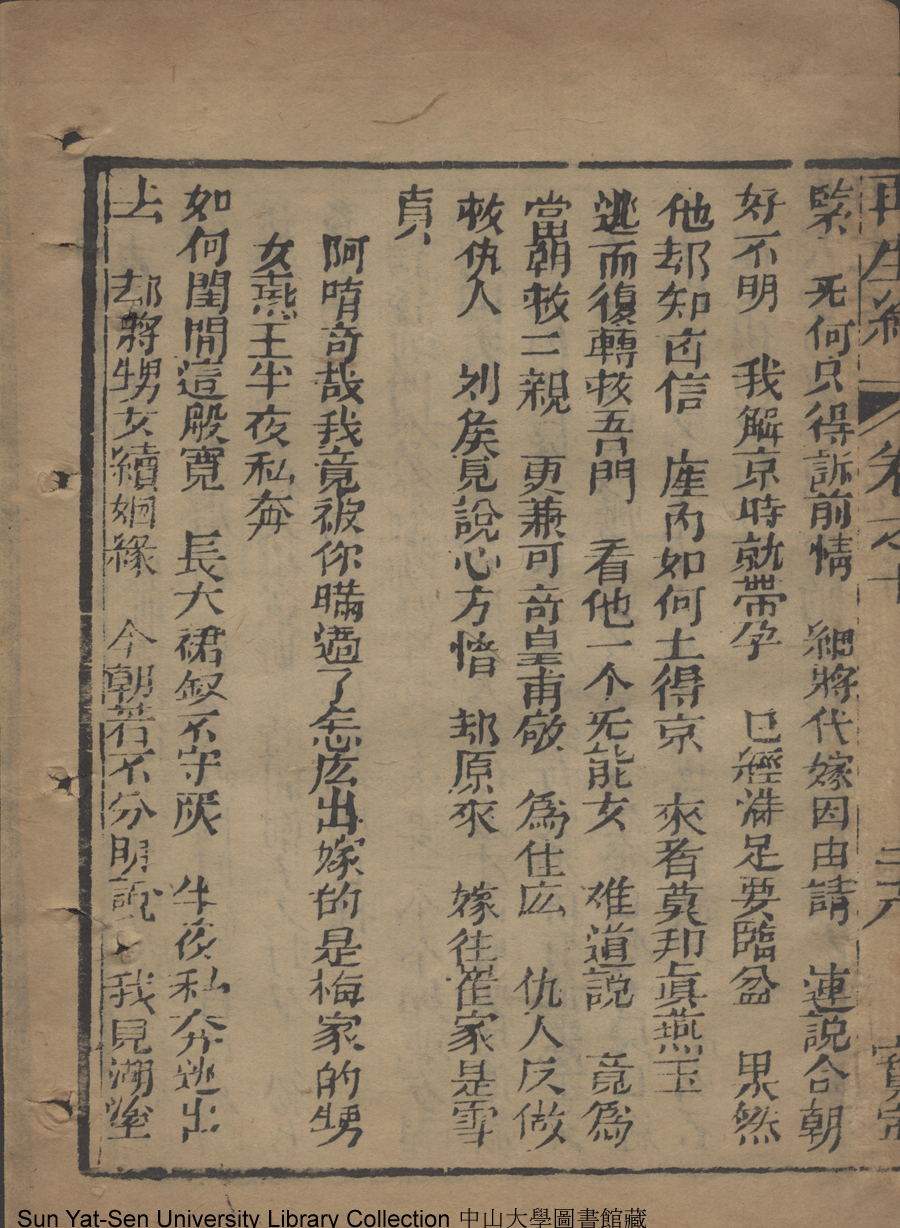 再生緣 卷之十 二六 寶寧
緊 无何只得訴前情 細將代嫁因由請 連說合朝
好不明 我解京時就帶孕 已經滿足要臨盆 果然
他却知凶信 座内如何土得京 來者莫非眞燕玉
逃而復轉救吾門 看他一个无能女 难道説 竟為
當朝救二親 更兼可竒皇甫敬 為住広 仇人反做
救仇人 刘矦見說心方 却原來 嫁往崔家是雪
貞
阿唷竒哉我竟被你瞞過了怎庅出嫁的是梅家的甥
女燕王半夜私奔
如何閨閫這般寛 長大裙釵不守 半夜私奔逃出
去 却將甥女續姻緣 今朝若不分明説 我見湖
Sun Yat-Sen University Library Collection 中山大學圖書館藏